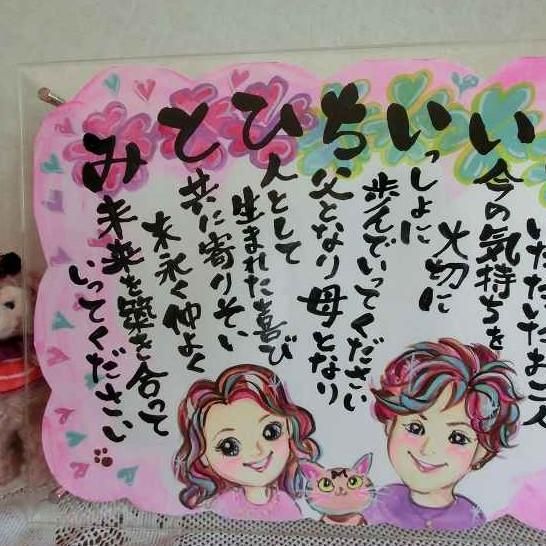 いただいたお二人
い 今の気持ちを
大切に
い いっしょに
歩んでいってください
ち 父となり母となり
ひ 人として
生まれた喜び
と 共に寄りそい
末永く仲よく
み 未来を築き合って
いってください